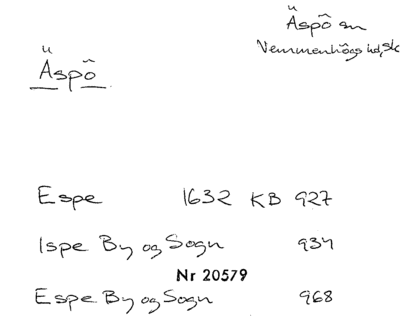 Äspö sn
Vemmenhögs hd, Sk
Äspö
Espe 1632 KB 927
Ispe By og Sogn 934
Nr 20579
Espe By og Sogn 968